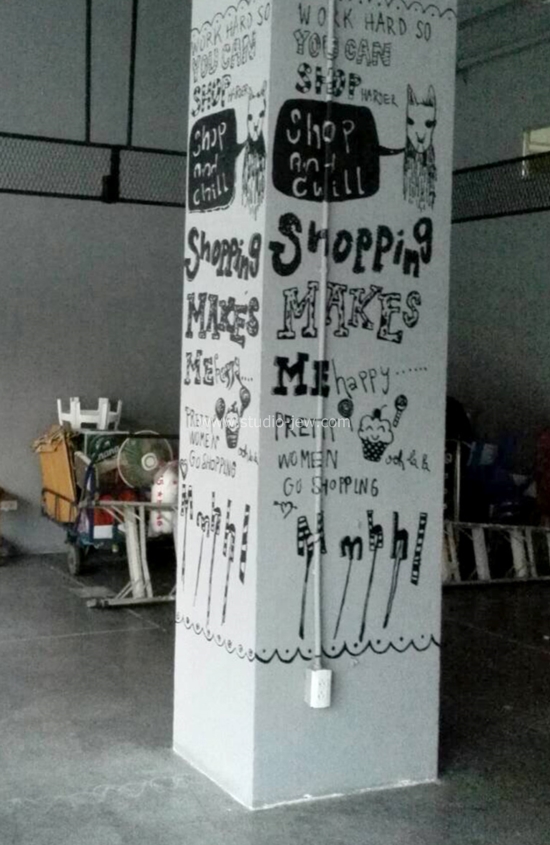 WORK HARD SO
YOU CAN
SHOP HARDER
Shop
and
chill
Shopping
MAKES
ME happy......
PRETTY
WOMEN ooh la la
GO SHOPPING
Mmhh!
WORK HARD SO
YOU CAN
SHOP HARDER
Shop
and
chill
Shopping
MAKES
ME happy......
PRETTY
WOMEN ooh la la
GO SHOPPING
Mmhh!
www.studiopiew.com